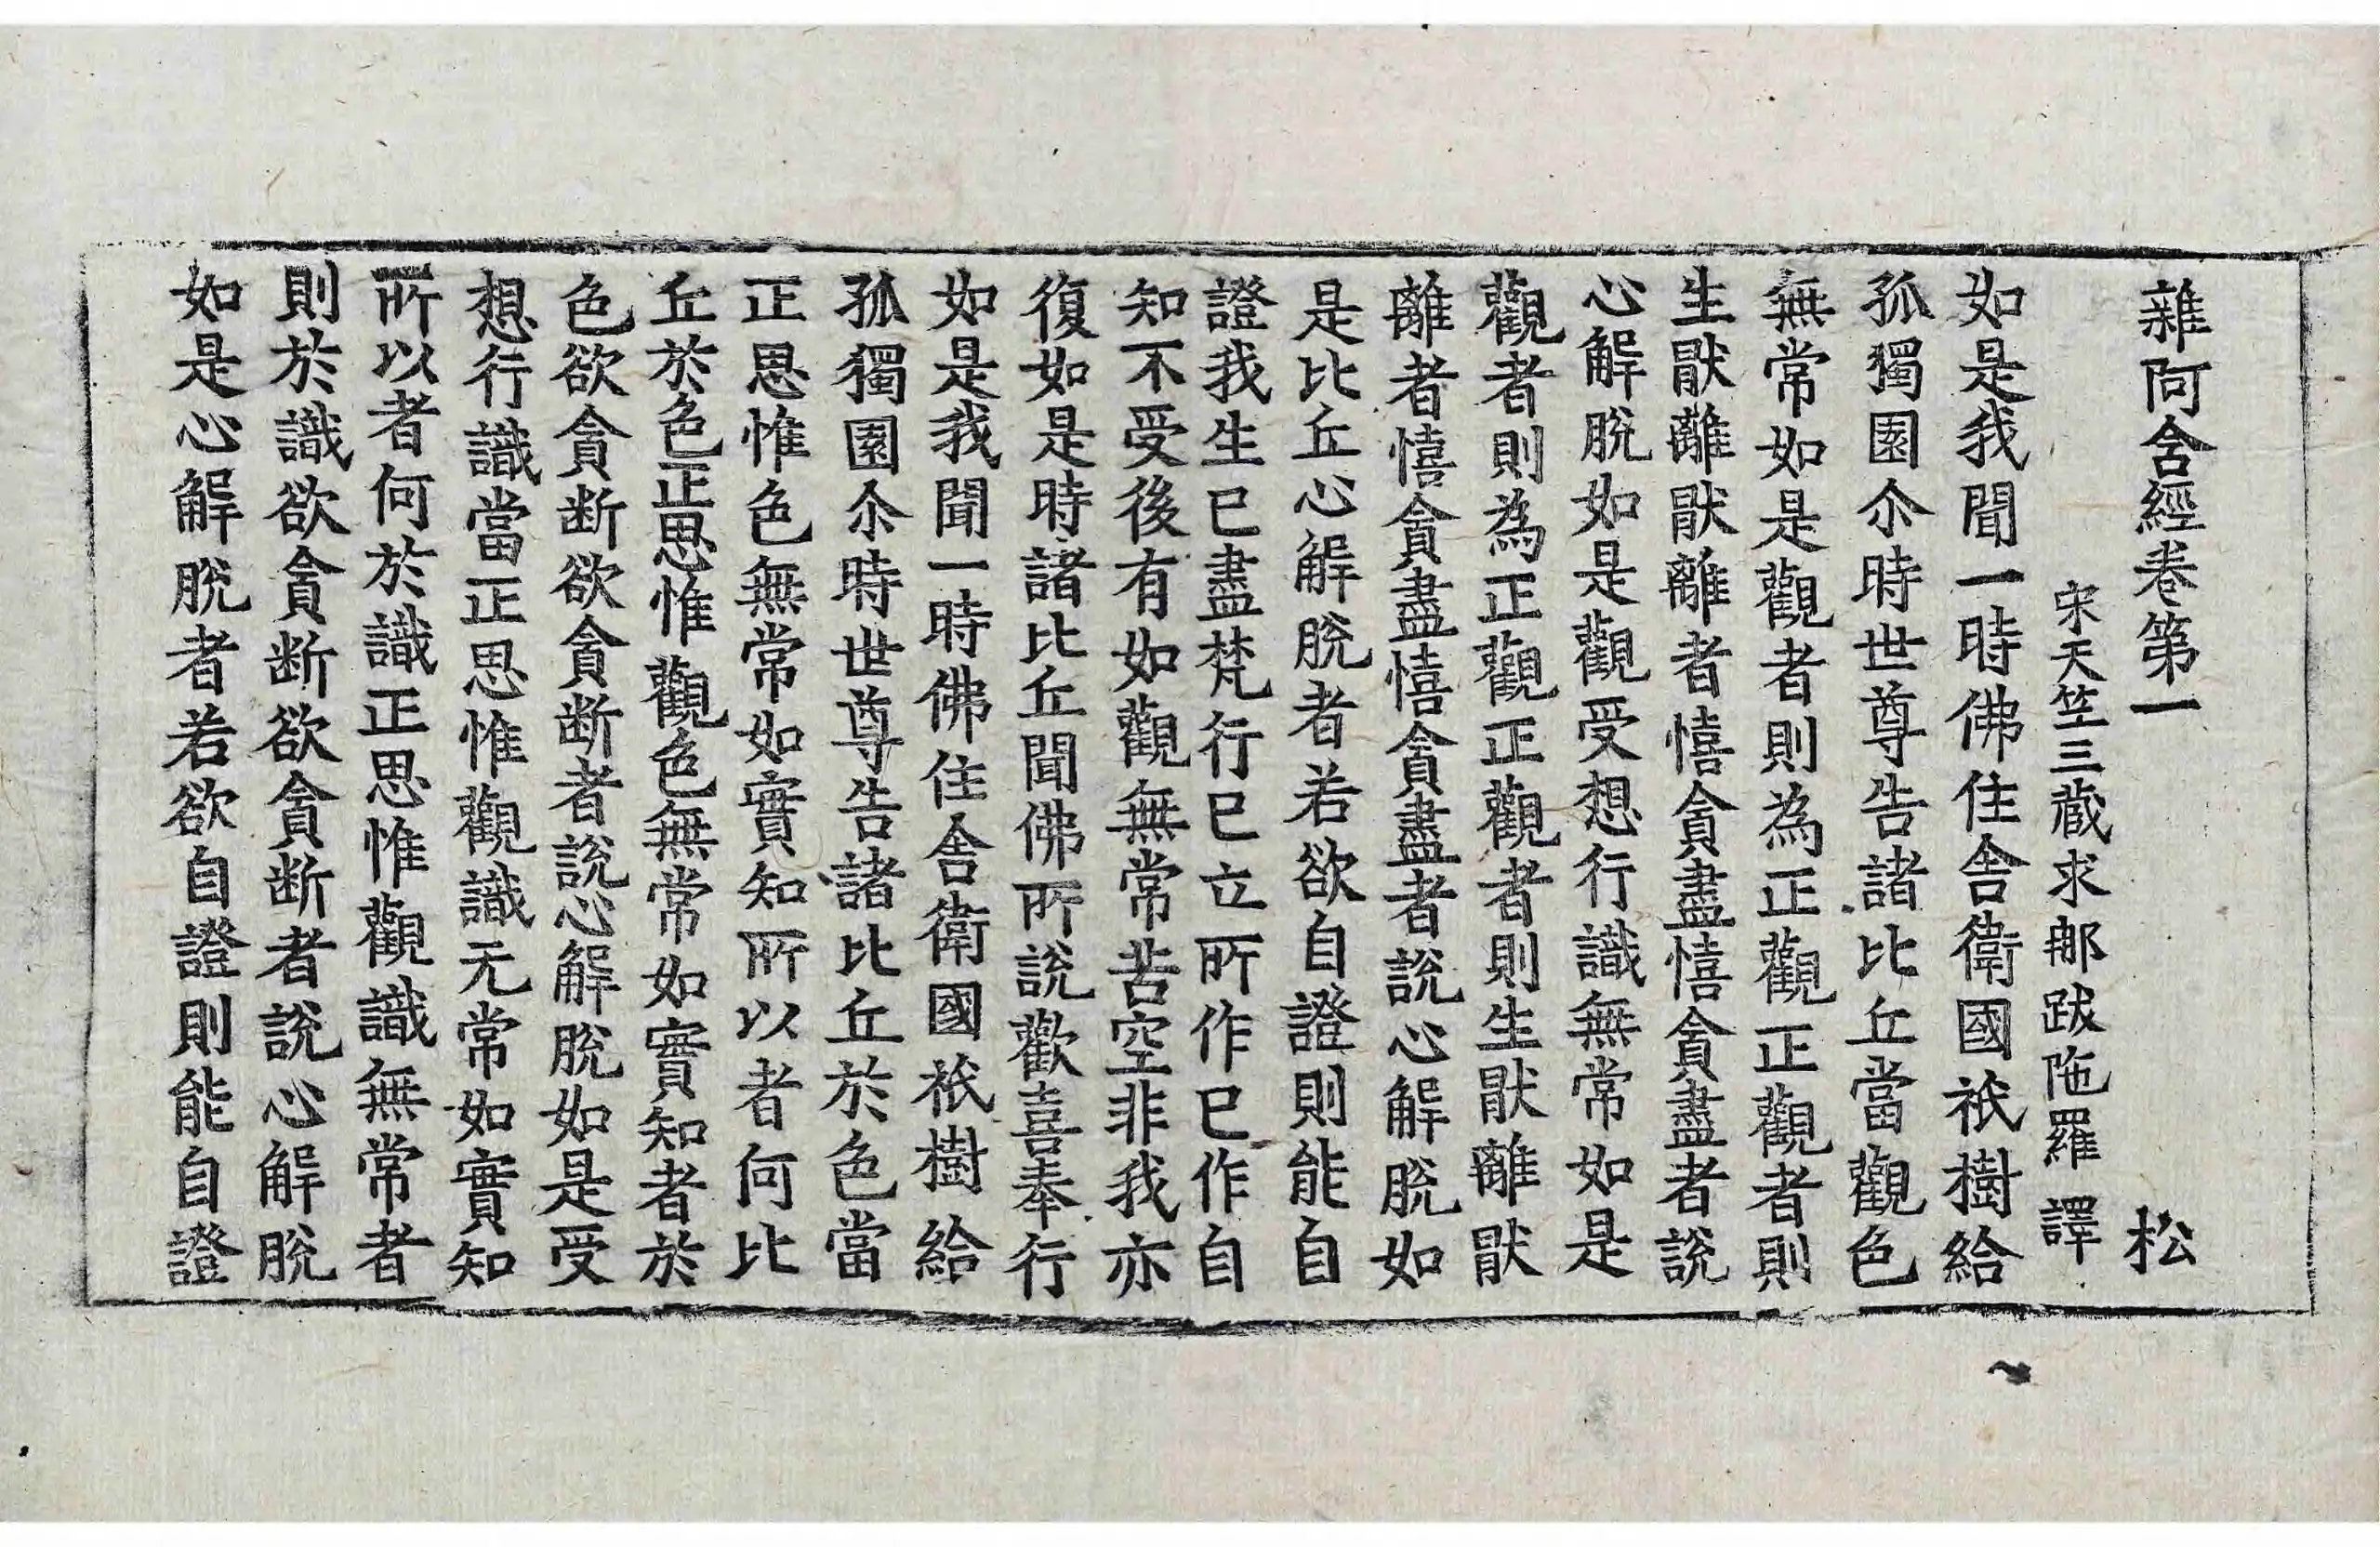 雜阿含經卷第一　松
宋天竺三藏求那跋陁羅　譯
如是我聞一時佛住舍衛國祇樹給
孤獨園尒時世尊告諸比丘當觀色
無常如是觀者則為正觀正觀者則
生猒離猒離者憘貪盡憘貪盡者說
心解脫如是觀受想行識無常如是
觀者則為正觀正觀者則生猒離猒
離者憘貪盡憘貪盡者說心解脫如
是比丘心解脫者若欲自證則能自
證我生已盡梵行已立所作已作自
知不受後有如觀無常苦空非我亦
復如是時諸比丘聞佛所說歡喜奉行
如是我聞一時佛住舍衛國祇樹給
孤獨園尒時世尊告諸比丘於色當
正思惟色無常如實知所以者何比
丘於色正思惟觀色無常如實知者於
色欲貪断欲貪断者說心解脫如是受
想行識當正思惟觀識无常如實知
所以者何於識正思惟觀識無常者
則於識欲貪断欲貪断者說心解脫
如是心解脫者若欲自證則能自證